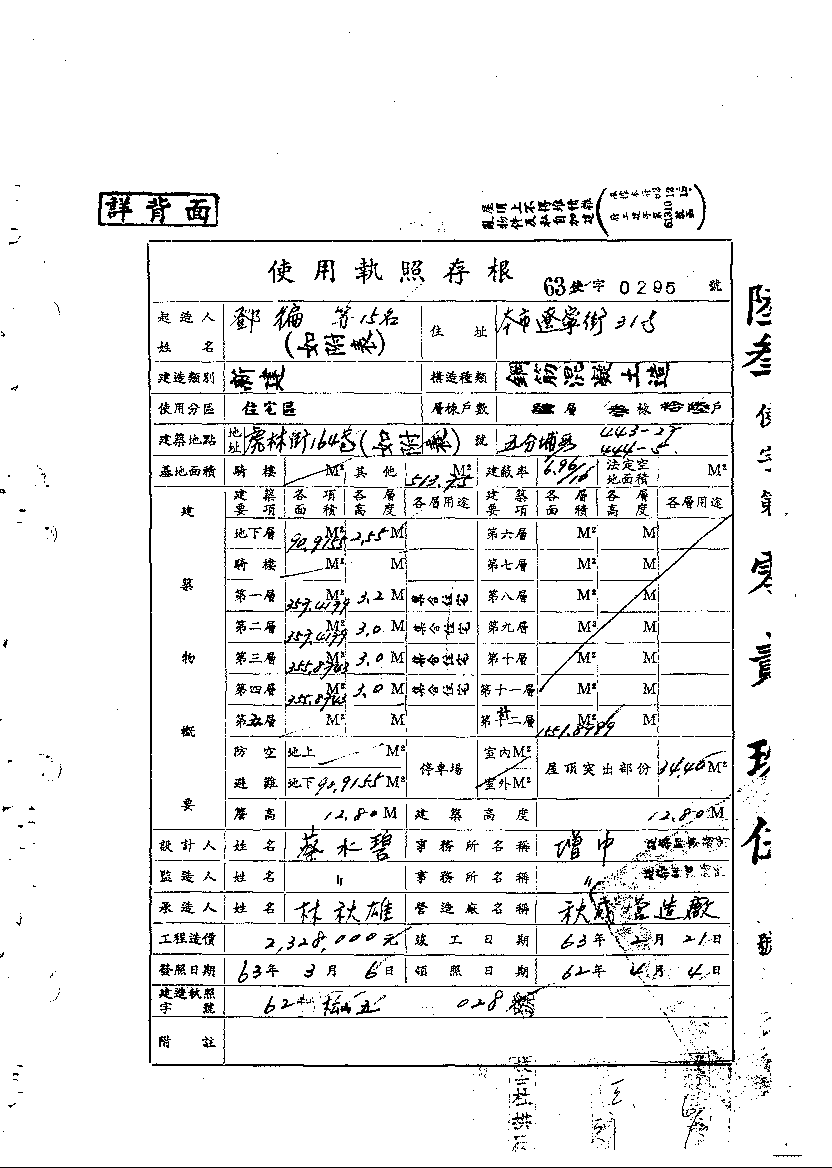 詳背面
屋頂上不得堆積雜
亂物件及私自加建
使用執照存根
63使字0295號
起造人姓名 鄧編等15名(如附表) 住址 本市遼寧街31號
建造類別 新建 構造種類 鋼筋混凝土造
使用分區 住宅區 層棟戶數 肆層 棟 戶
建築地點 地址 虎林街164巷(如附表)號 五分埔段 443-29 444-5
基地面積 騎樓 M² 其他 513.75 M² 建蔽率 6.96/10 法定空地面積 M²
建築物概要
建築要項 各項面積 各層高度 各層用途 建築要項 各層面積 各層高度 各層用途
地下層 90.9155 M² 2.55 M 第六層 M² M
騎樓 M² M 第七層 M² M
第一層 357.4199 M² 3.2 M 集合住宅 第八層 M² M
第二層 357.4199 M² 3.0 M 集合住宅 第九層 M² M
第三層 355.8743 M² 3.0 M 集合住宅 第十層 M² M
第四層 355.8743 M² 3.0 M 集合住宅 第十一層 M² M
第五層 M² M 第十二層 1551.8999 M² M
防空避難 地上 M² 地下 90.9155 M² 停車場 室內 M² 室外 M² 屋頂突出部份 34.40 M²
簷高 12.80 M 建築高度 12.80 M
設計人 姓名 蔡水碧 事務所名稱 增中
監造人 姓名 〃 事務所名稱 〃
承造人 姓名 林秋雄 營造廠名稱 秋茂營造廠
工程造價 2,328,000元 竣工日期 63年2月21日
發照日期 63年3月6日 領照日期 62年4月4日
建造執照字號 62 松山五 028號
附註
陸叁使字第零貳玖伍號